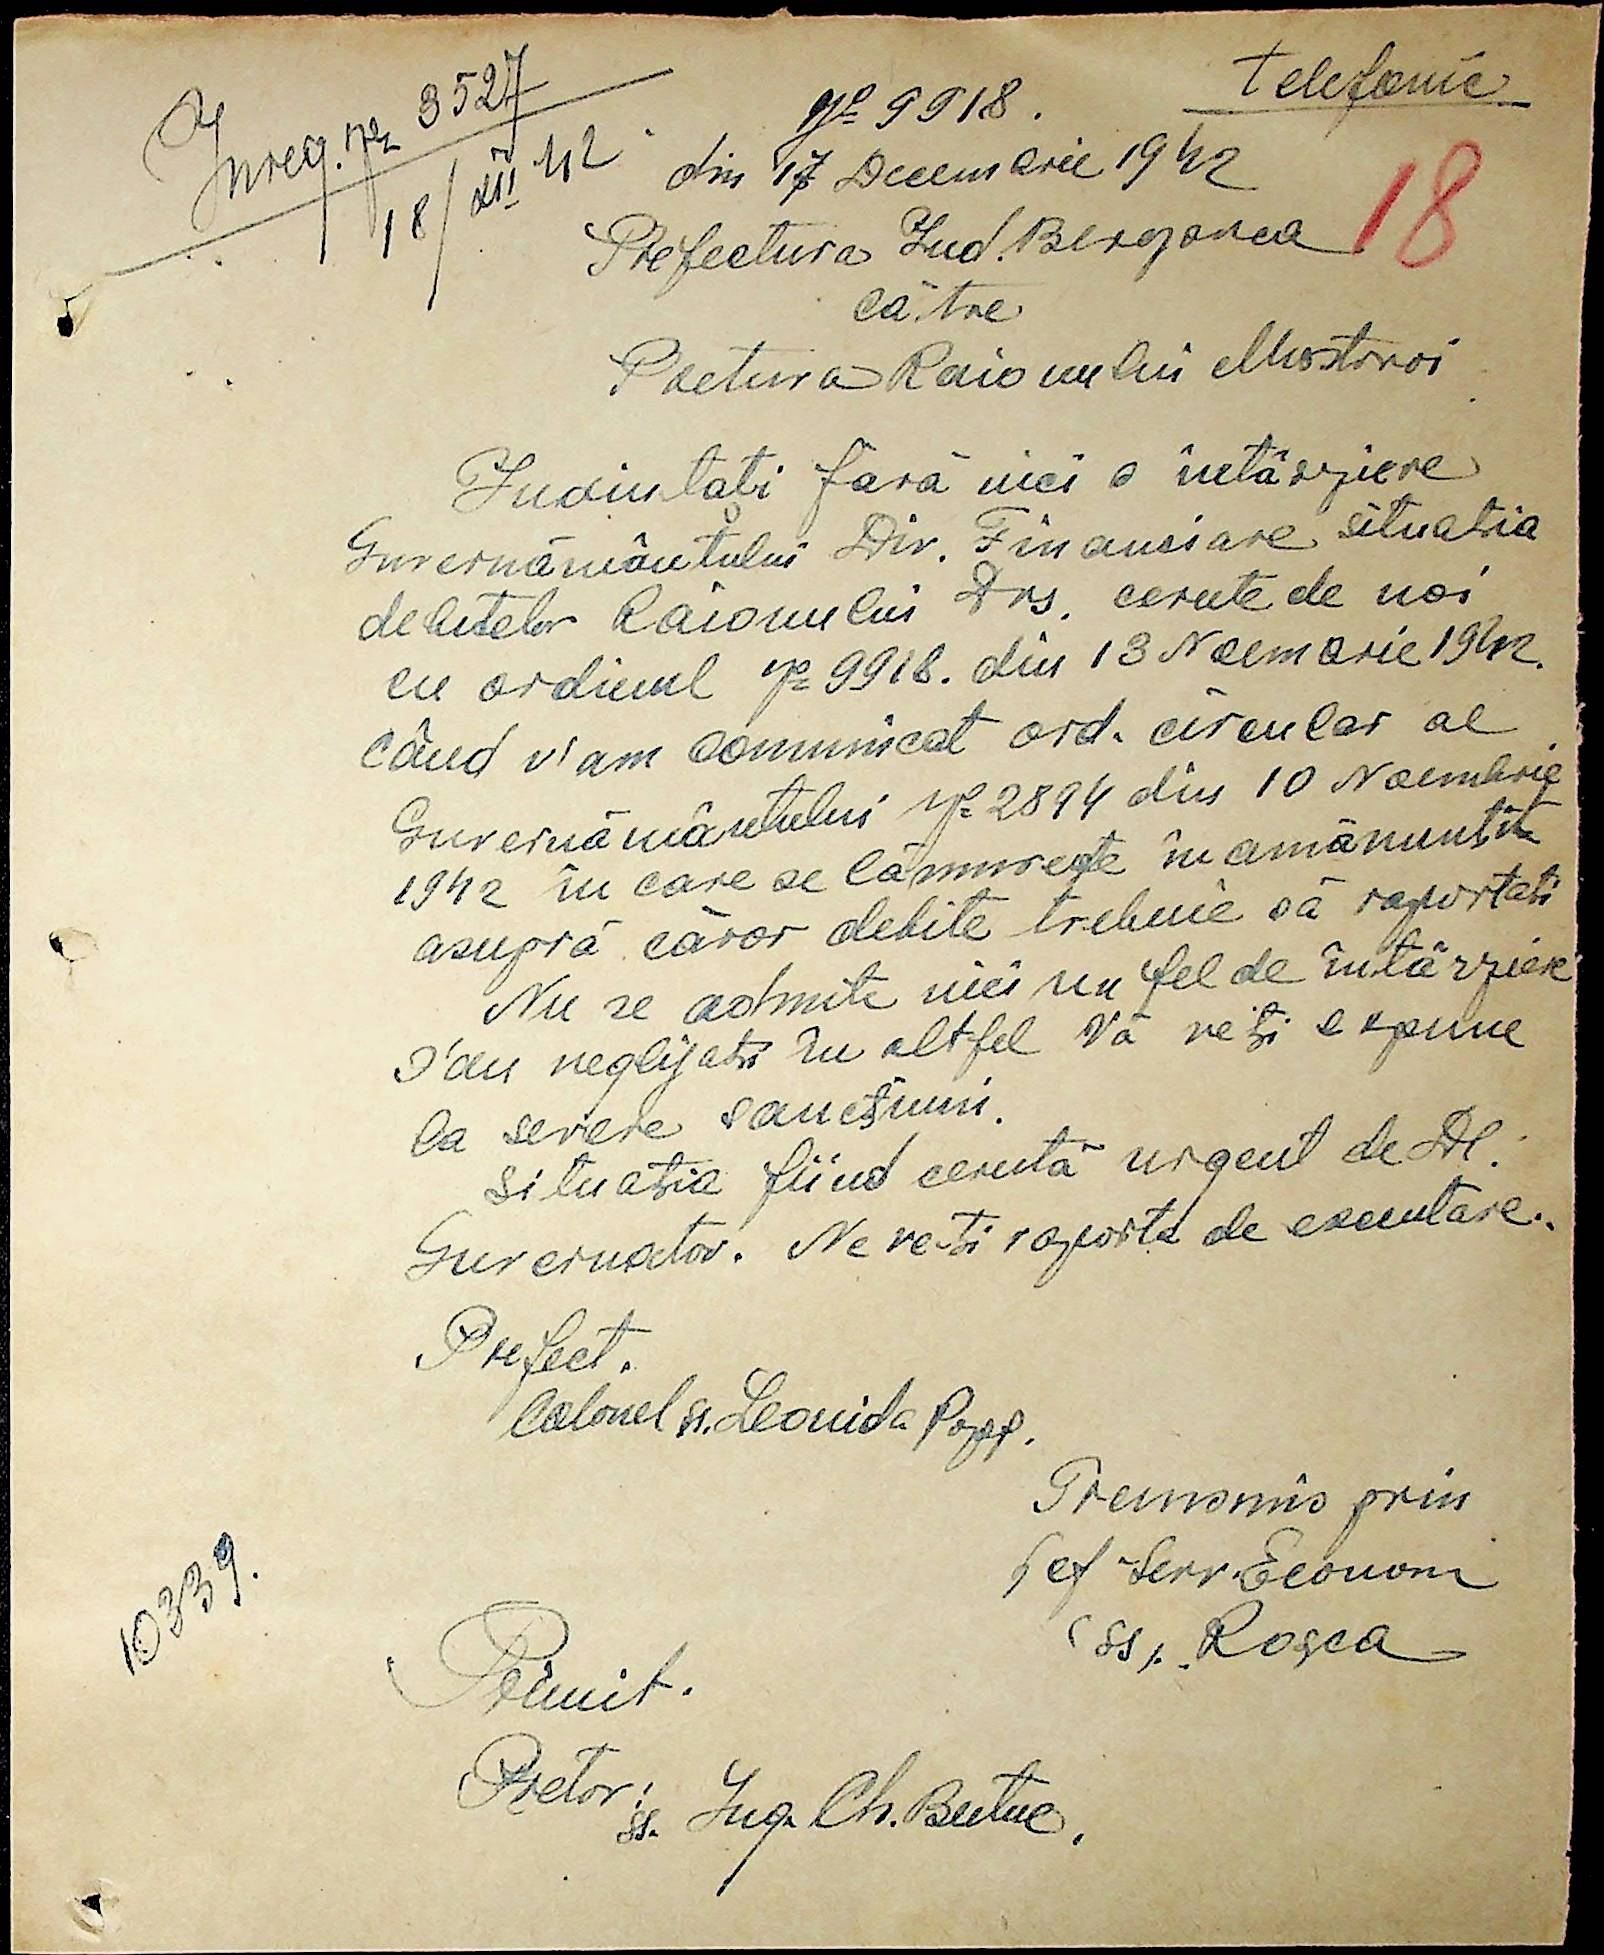 Inreg. № 3527
18/XII 942
telefonic
№ 9918.
din 17 Decembrie 1942
18
Prefectura Jud. Berezovca
către
Pretura Raionului Mostovoi
Inaintati fără nici o întârziere
Guvernământului Dir. Financiare situatia
debitelor Raionului Dvs. cerute de noi
cu ordinul № 9918. din 13 Noembrie 1942.
când v'am comunicat ord. circular al
Guvernământului № 2894 din 10 Noembrie
1942 în care se lămurește în amănunțit
asupră căror debite trebuie să raportati
Nu se admite nici un fel de întârziere
s'au neglijati în altfel Vă veți expune
la severe sancțiuni.
Situația fiind cerută urgent de Dl.
Guvernator. Ne veți raporta de executare.
Prefect.
Colonel ss. Leonida Popp.
Transmis prin
Șef Serv. Econom
ss. Roșca
10339.
Primit.
Pretor:
ss. Ing. Ch.